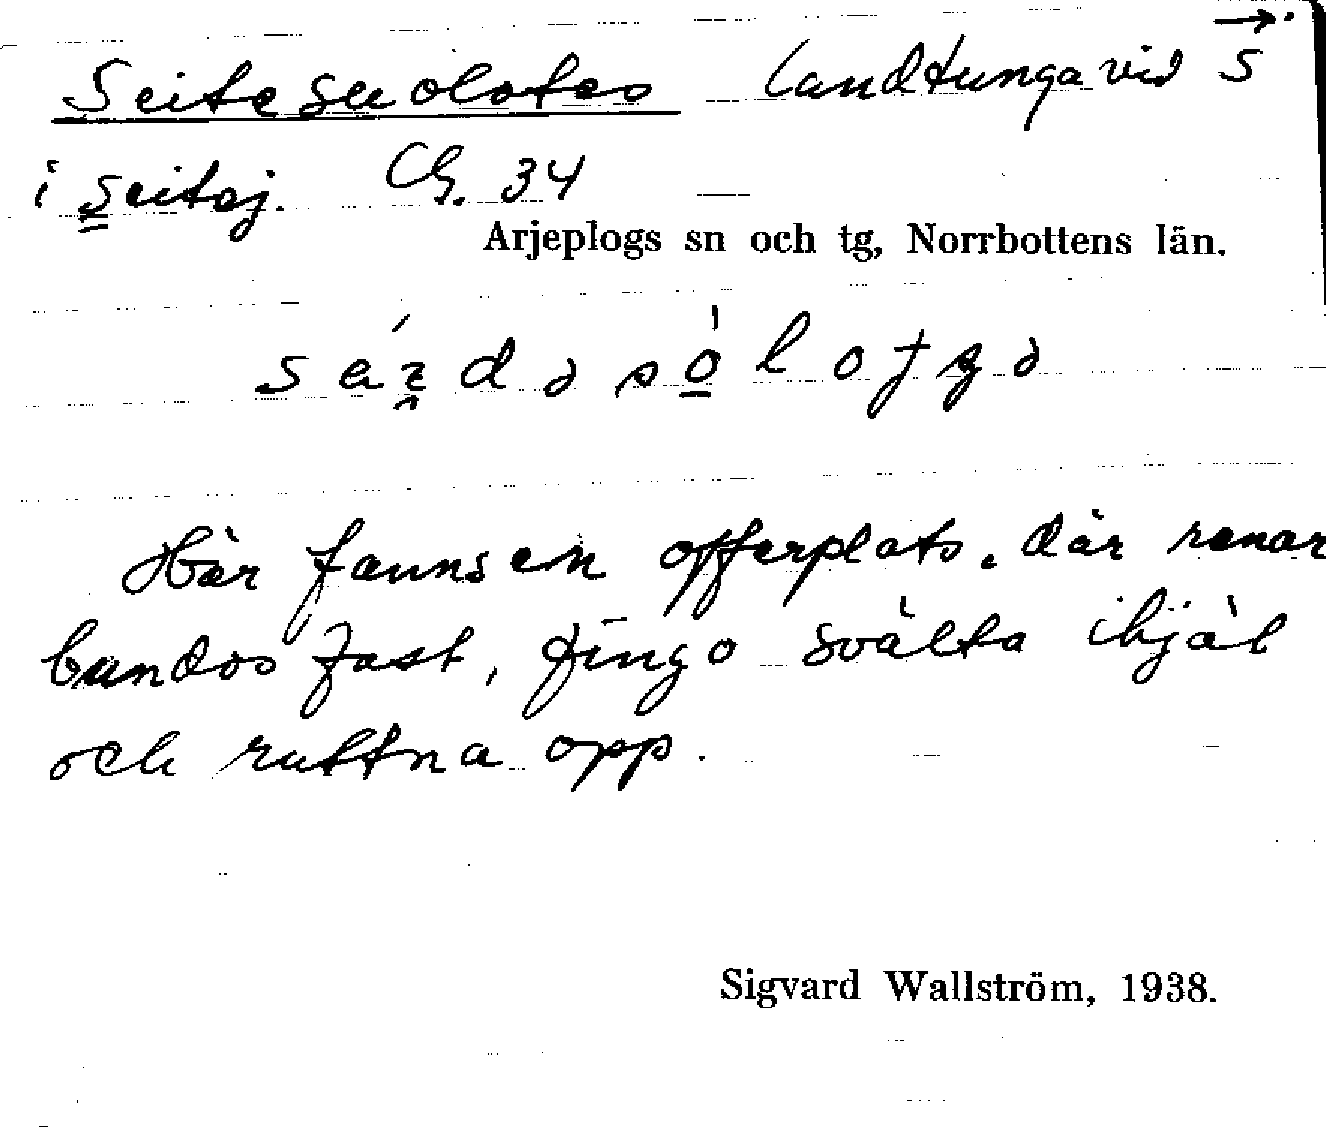 Seitesuolotes landtunga vid S →
i Seitej. Cg. 34
Arjeplogs sn och tg, Norrbottens län.
Här fanns en offerplats, där renar
bundos fast, fingo svälta ihjäl
och ruttna opp.
Sigvard Wallström, 1938.